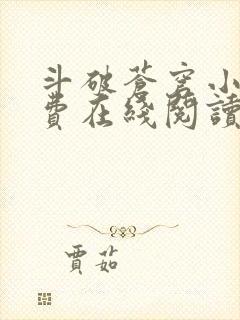 斗破苍穹小
费在线阅读
贾茹